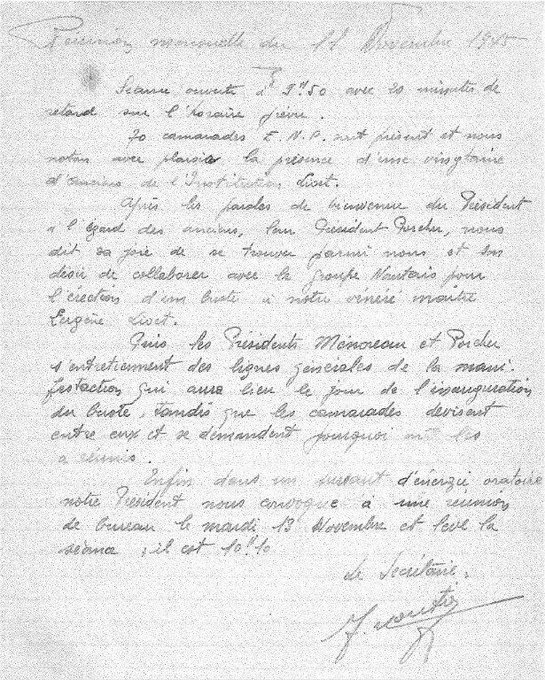 Réunion mensuelle du 11 Novembre 1945
Séance ouverte à 9h50 avec 20 minutes de
retard sur l'horaire prévu.
70 camarades E.N.P. sont présent et nous
notons avec plaisir la présence d'une vingtaine
d'anciens de l'Institution Livet.
Après les paroles de bienvenue du Président
à l'égard des anciens, leur Président Porcher, nous
dit sa joie de se trouver parmi nous et son
désir de collaborer avec le groupe Nantais pour
l'érection d'un buste à notre vénéré maître
Eugène Livet.
Puis les Présidents Ménoreau et Porcher
s'entretiennent des lignes générales de la mani-
festaction qui aura lieu le jour de l'inauguration
du buste, tandis que les camarades devisent
entre eux et se demandent pourquoi les
a réunis.
Enfin dans un sursaut d'énergie oratoire
notre Président nous convoque à une réunion
de bureau le mardi 13 Novembre et lève la
séance ; il est 10h10
Le Secrétaire.